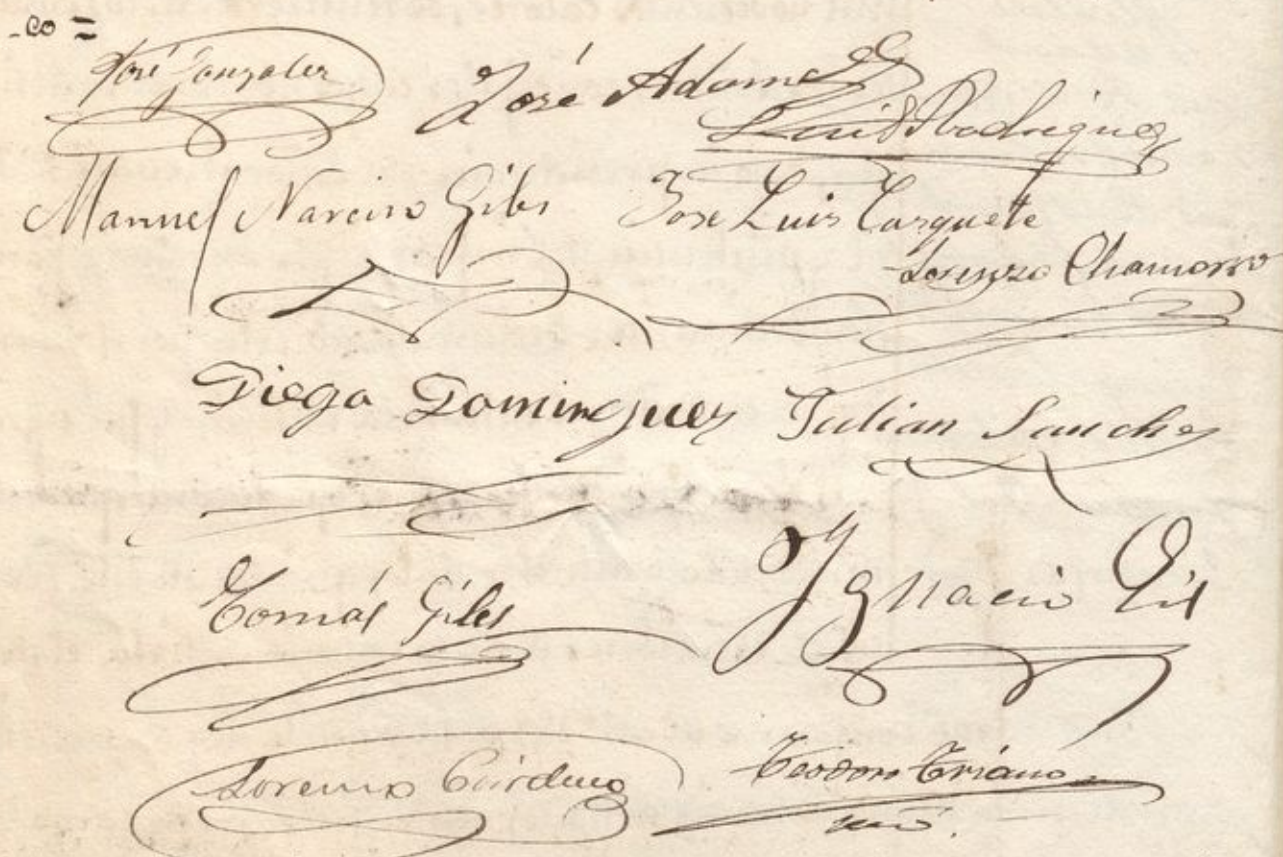 co =
José Gonzalez
José Adame
Luis Rodriguez
Manuel Narciso Giles José Luis Tarquete
Lorenzo Chamorro
Diego Dominguez Julian Sanchez
Tomás Giles Ygnacio Gil
Lorenzo
Teodoro Triano